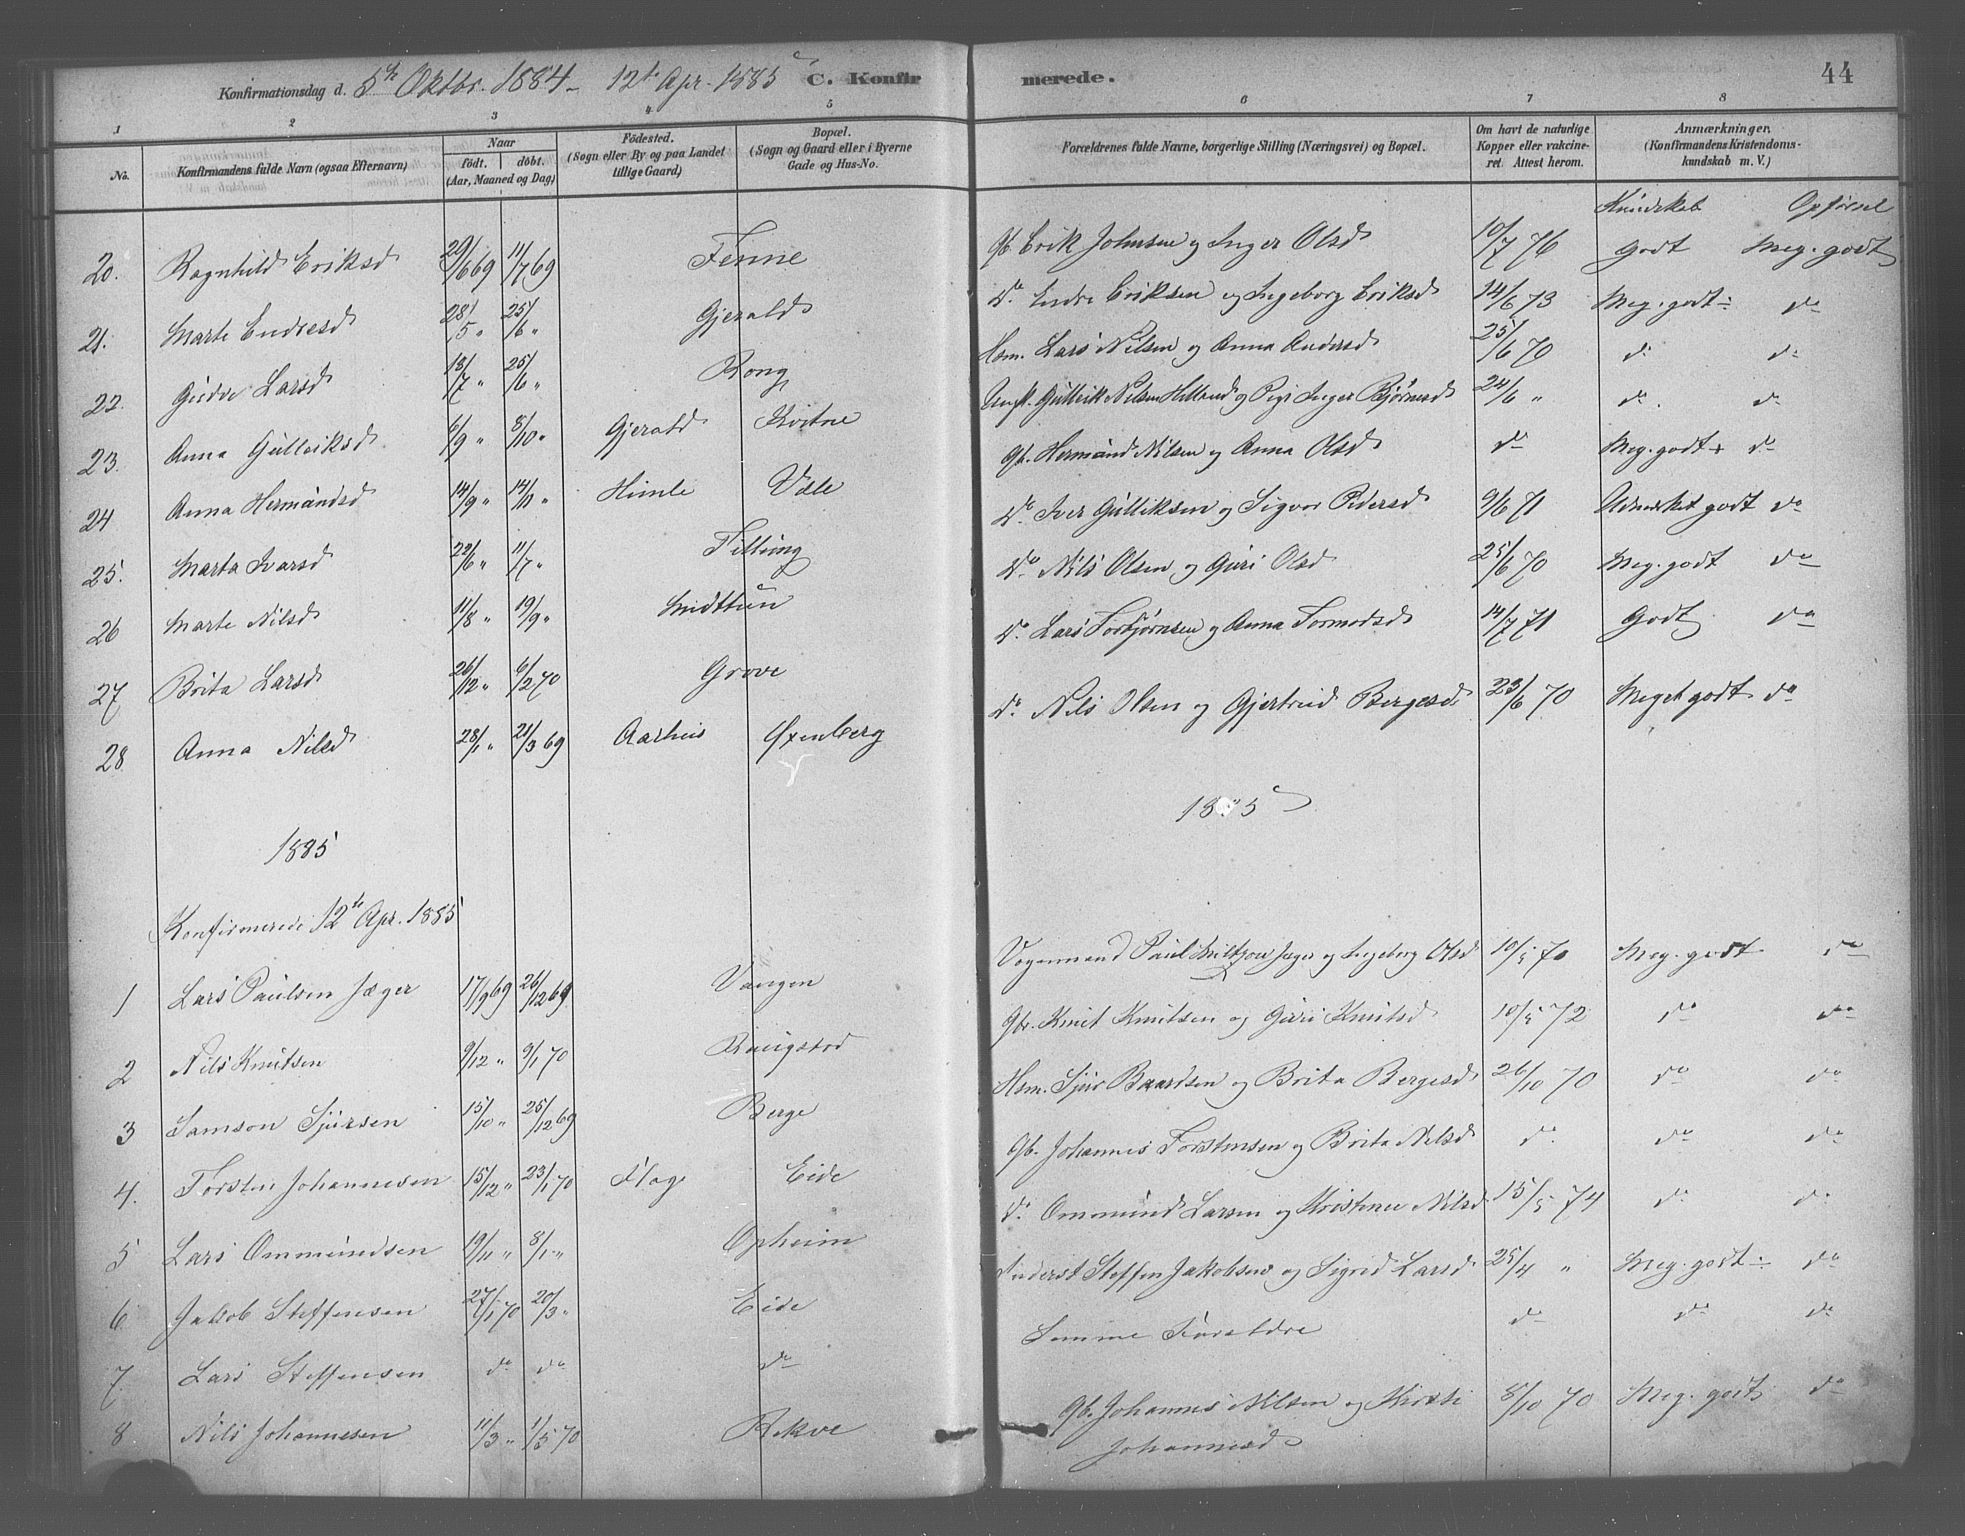 Konfirmationsdag d. 5te Oktbr. 1884 - 12te Apr. 1885 C. Konfirmerede. 44
1 2 3 4 5 6 7 8
No. Konfirmandens fulde Navn (ogsaa Efternavn) Naar født. døbt. (Aar, Maaned og Dag) Fødested. (Sogn eller By og paa Landet tillige Gaard) Bopæl. (Sogn og Gaard eller i Byerne Gade og Hus-No. Forældrenes fulde Navne, borgerlige Stilling (Næringsvei) og Bopæl. Om havt de naturlige Kopper eller vakcineret. Attest herom. Anmærkninger. (Konfirmandens Kristendomskundskab m. V.)
Kundskab Opførsel
20. Ragnhild Eriksd 20/6 69 11/7 69 Fenne Gb Erik Johnsen og Inger Olsd 10/7 76 Godt Meg. godt
21. Marte Endresd 28/5 " 25/6 " Gjerald Do Endre Eriksen og Ingeborg Eriksd 14/6 73 Meg. godt ÷ do
22. Gudve Larsd 18/7 " 25/6 " Rong Hsm. Lars Nilsen og Anna Andersd 25/6 70 do do
23. Anna Gulleiksd 6/9 " 8/10 " Gjerald Kvitne Gulleik Nilsen Helland og Pige Inger Bjørnsd 24/6 " do. do
24 Anna Hermundsd 14/9 " 14/11 " Himle Væle Gb. Hermund Nilsen og Anna Olsd do Meg. godt + do
25. Marta Ivarsd 22/6 " 11/7 " Tillung Do Iver Gulleiksen og Sigvor Pedersd 9/6 71 Udmerket godt do
26 Marte Nilsd 11/8 " 19/9 " Midttun Do Nils Olsen og Guri Olsd 25/6 70 Meg. godt do
27 Brita Larsd 26/12 " 6/2 70 Grove Do Lars Torbjørnsen og Anna Tormodsd 14/7 71 Godt do
28 Anna Nilsd 28/1 " 21/3 69 Aarhus Øxenberg Do Nils Olsen og Gjertrud Bergesd 23/6 70 Meget godt do
1885 1885
Konfirmerede 12te Apr. 1885
1 Lars Paulsen Jæger 17/9 69 26/12 69 Vangen Vognmand Paul Jæger og Ingeborg Olsd 10/5 70 Meg. godt do
2 Nils Knutsen 9/12 " 9/1 70 Ringstad Gbr. Knut Knutsen og Guri Knutsd 10/5 72 do do
3 Samson Sjursen 15/10 " 25/12 69 Berge Hsm. Sjur Baardsen og Brita Bergesd 26/10 70 do do
4. Torsten Johannesen 15/12 " 23/1 70 Flage Eide Gb. Johannes Torstensen og Brita Nilsd do do do
5 Lars Ommundsen 19/11 " 8/1 " Opheim Do Ommund Larsen og Kristense Nilsd 15/5 74 do do
6 Jakob Steffensen 27/1 70 20/3 " Eide Inderst Steffen Jakobsen og Sigrid Larsd 25/4 " Meg. godt ÷ do
7 Lars Steffensen do do do Samme Forældre do do do
8 Nils Johannesen 11/3 " 1/5 70 Rekve Gb. Johannes Nilsen og Kirsti 8/10 70 Meg. godt do
Johannesd